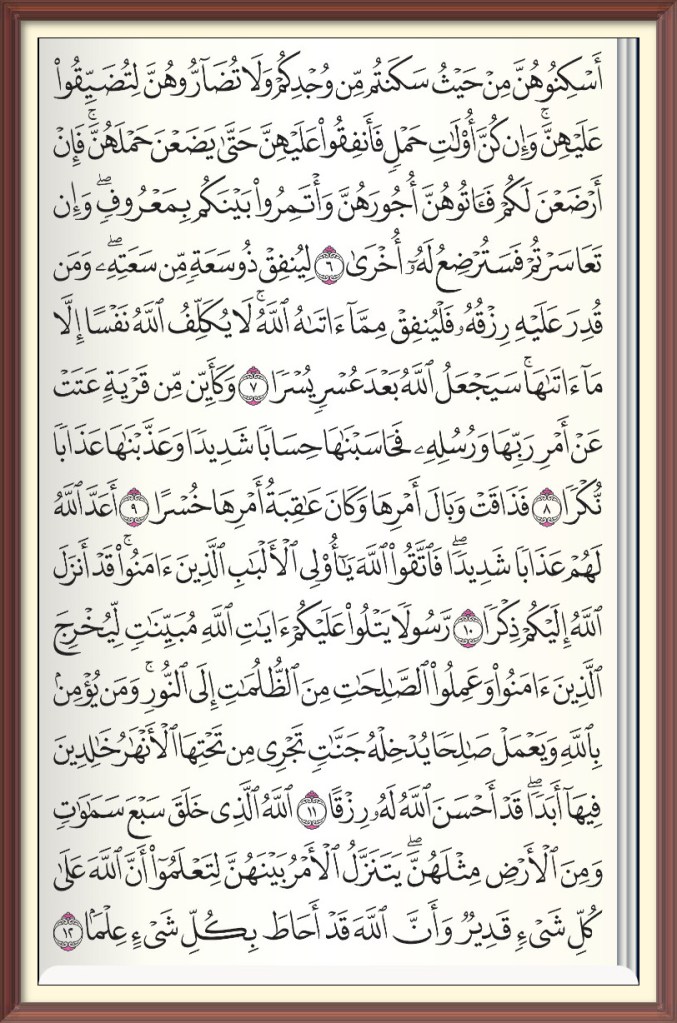 أَسْكِنُوهُنَّ مِنْ حَيْثُ سَكَنتُم مِّن وُجْدِكُمْ وَلَا تُضَآرُّوهُنَّ لِتُضَيِّقُوا۟
عَلَيْهِنَّ ۚ وَإِن كُنَّ أُو۟لَٰتِ حَمْلٍ فَأَنفِقُوا۟ عَلَيْهِنَّ حَتَّىٰ يَضَعْنَ حَمْلَهُنَّ ۚ فَإِنْ
أَرْضَعْنَ لَكُمْ فَـَٔاتُوهُنَّ أُجُورَهُنَّ وَأْتَمِرُوا۟ بَيْنَكُم بِمَعْرُوفٍ ۖ وَإِن
تَعَاسَرْتُمْ فَسَتُرْضِعُ لَهُۥٓ أُخْرَىٰ ٦ لِيُنفِقْ ذُو سَعَةٍ مِّن سَعَتِهِۦ ۖ وَمَن
قُدِرَ عَلَيْهِ رِزْقُهُۥ فَلْيُنفِقْ مِمَّآ ءَاتَىٰهُ ٱللَّهُ ۚ لَا يُكَلِّفُ ٱللَّهُ نَفْسًا إِلَّا
مَآ ءَاتَىٰهَا ۚ سَيَجْعَلُ ٱللَّهُ بَعْدَ عُسْرٍ يُسْرًا ٧ وَكَأَيِّن مِّن قَرْيَةٍ عَتَتْ
عَنْ أَمْرِ رَبِّهَا وَرُسُلِهِۦ فَحَاسَبْنَٰهَا حِسَابًا شَدِيدًا وَعَذَّبْنَٰهَا عَذَابًا
نُّكْرًا ٨ فَذَاقَتْ وَبَالَ أَمْرِهَا وَكَانَ عَٰقِبَةُ أَمْرِهَا خُسْرًا ٩ أَعَدَّ ٱللَّهُ
لَهُمْ عَذَابًا شَدِيدًا ۖ فَٱتَّقُوا۟ ٱللَّهَ يَٰٓأُو۟لِى ٱلْأَلْبَٰبِ ٱلَّذِينَ ءَامَنُوا۟ ۚ قَدْ أَنزَلَ
ٱللَّهُ إِلَيْكُمْ ذِكْرًا ١٠ رَّسُولًا يَتْلُوا۟ عَلَيْكُمْ ءَايَٰتِ ٱللَّهِ مُبَيِّنَٰتٍ لِّيُخْرِجَ
ٱلَّذِينَ ءَامَنُوا۟ وَعَمِلُوا۟ ٱلصَّٰلِحَٰتِ مِنَ ٱلظُّلُمَٰتِ إِلَى ٱلنُّورِ ۚ وَمَن يُؤْمِنۢ
بِٱللَّهِ وَيَعْمَلْ صَٰلِحًا يُدْخِلْهُ جَنَّٰتٍ تَجْرِى مِن تَحْتِهَا ٱلْأَنْهَٰرُ خَٰلِدِينَ
فِيهَآ أَبَدًا ۖ قَدْ أَحْسَنَ ٱللَّهُ لَهُۥ رِزْقًا ١١ ٱللَّهُ ٱلَّذِى خَلَقَ سَبْعَ سَمَٰوَٰتٍ
وَمِنَ ٱلْأَرْضِ مِثْلَهُنَّ ۖ يَتَنَزَّلُ ٱلْأَمْرُ بَيْنَهُنَّ لِتَعْلَمُوٓا۟ أَنَّ ٱللَّهَ عَلَىٰ
كُلِّ شَىْءٍ قَدِيرٌ وَأَنَّ ٱللَّهَ قَدْ أَحَاطَ بِكُلِّ شَىْءٍ عِلْمًۢا ١٢